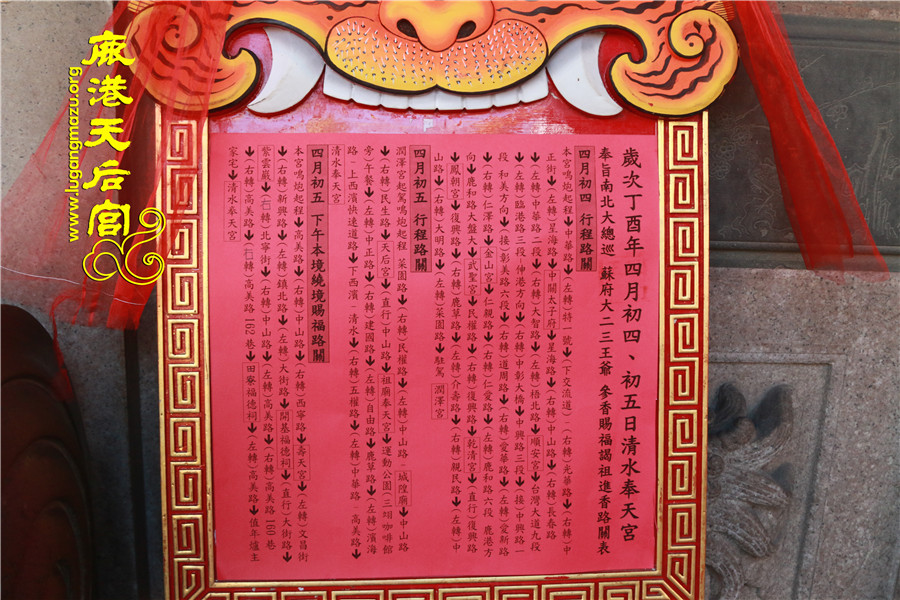 歲次丁酉年四月初四、初五日清水奉天宮
奉旨南北大總巡 蘇府大二三王爺 參香賜福謁祖進香路關表
四月初四 行程路關
本宮鳴炮起程➔中華路➔(左轉)特一號➔(下交流道)–(右轉)光華路➔(右轉)中
正街➔(左轉)星海路➔(中關太子府➔星海路➔(右轉)中山路➔(右轉)長春路
➔(左轉)中華路二段➔(右轉)大智路➔(左轉)梧北路➔順安宮➔台灣大道九段
➔(左轉)臨港路三段(伸港方向)➔(右轉)中彰大橋➔中興路三段➔(接)中興路一
段(和美方向)➔(接)彰美路六段➔(右轉)道周路➔(右轉)愛華路➔(左轉)愛新路
➔(右轉)仁澤路➔金山宮➔仁親路➔(右轉)仁愛路➔(左轉)鹿和路六段(鹿港方
向)➔鹿和路大盤大➔武聖宮➔民權路➔(右轉)復興路➔乾清宮➔(直行)復興路
➔鳳朝宮➔復興路➔(右轉)鹿草路➔(左轉)介壽路➔(右轉)親民路➔(左轉)中
山路➔(右轉)大明路➔(左轉)菜園路➔駐駕 潤澤宮
四月初五 行程路關
潤澤宮起駕鳴炮起程(菜園路)➔(右轉)民權路➔(左轉)中山路–城隍廟➔中山路
➔(右轉)民生路➔天后宮➔(直行)中山路➔祖廟奉天宮➔運動公園(三翊咖啡館
旁)午餐➔(左轉)中正路➔(右轉)建國路➔(左轉)自由路➔鹿草路➔(左轉)濱海
路–上西濱快速道路➔下西濱(清水)➔(右轉)五權路➔(左轉)中華路–高美路➔
清水奉天宮
四月初五 下午本境繞境賜福路關
本宮鳴炮起程➔高美路➔(右轉)中山路➔(右轉)西寧路➔壽天宮➔(左轉)文昌街
➔(右轉)新興路➔(左轉)鎮北路➔(左轉)大街路➔開基福德祠➔(直行)大街路➔
紫雲巖➔(右轉)北寧街➔(右轉)中山路➔(左轉)高美路➔(右轉)高美路160巷
➔(右轉)高美路➔(右轉)高美路162巷➔田寮福德祠➔(左轉)高美路➔值年爐主
家宅➔清水奉天宮
鹿港天后宮
www.lugangmazu.org